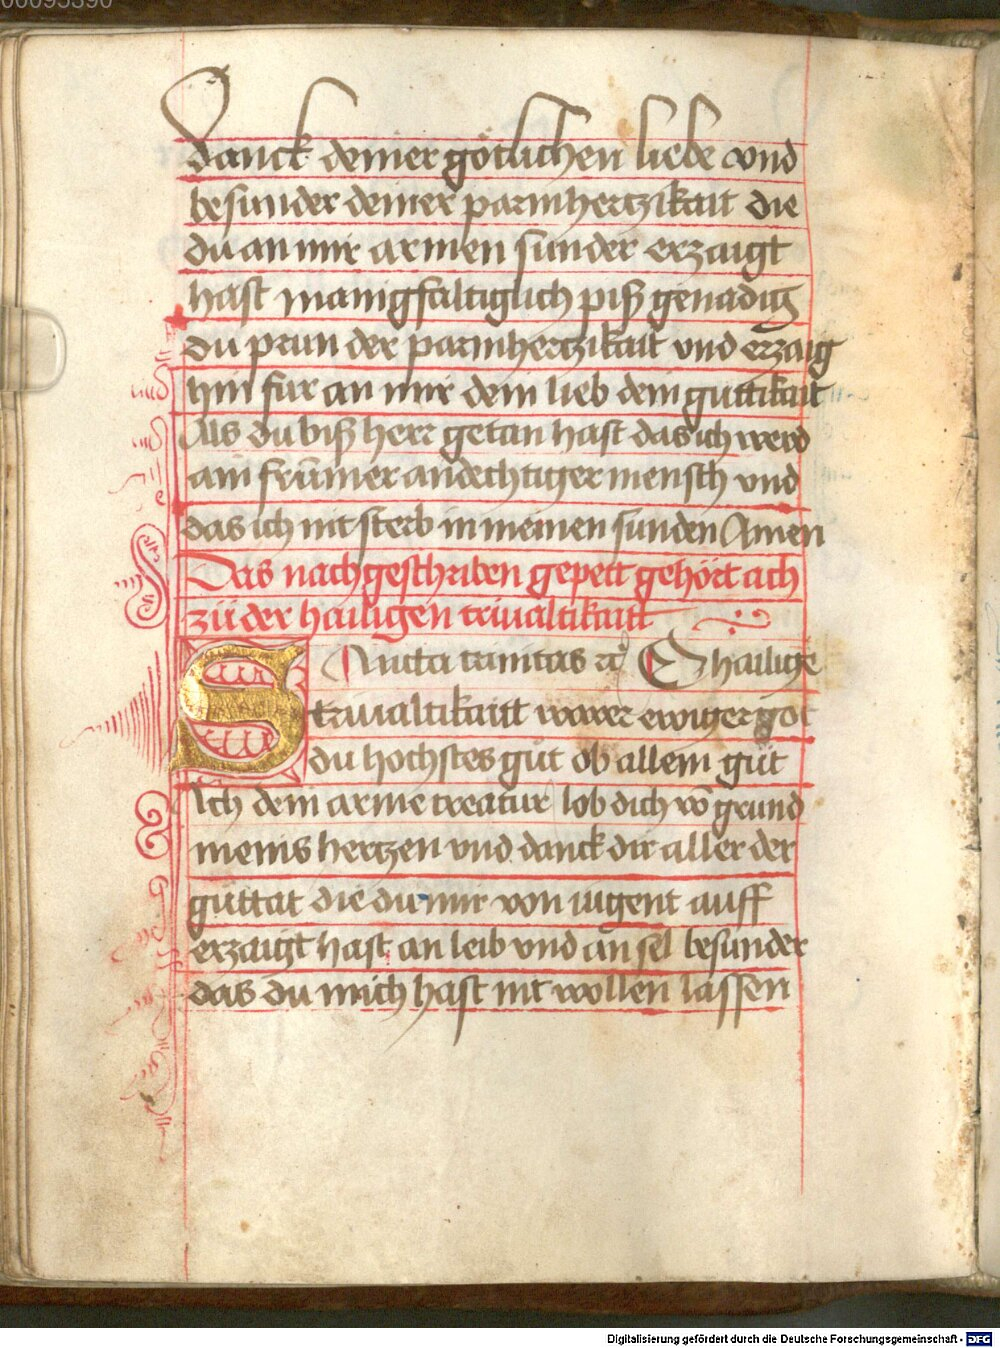 00095390
danck deiner götlichen liebe vnd
besunder deiner parmhertzikait die
du an mir armen sunder erzaigt
hast manigfaltiglich piß genadig
du prun der parmhertzikait vnd erzaig
hin fur an mir dein lieb dein guttikait
Als du biß herr getan hast das ich werd
ain frümer andechtiger mensch vnd
das ich nit sterb in meinen sunden Amen
Das nachgeschriben gepett gehört ach
zü der hailigen triualtikaitt
SAncta trinitas rc O hailige
triualtikaitt warer ewiger got
du hochstes güt ob allem güt
Ich dein arme creatur lob dich vō grund
meins hertzen vnd danck dir aller der
guttat die du mir von iugent auff
erzaigt hast an leib vnd an sel besunder
das du mich hast nit wollen lassen
Digitalisierung gefördert durch die Deutsche Forschungsgemeinschaft - DFG